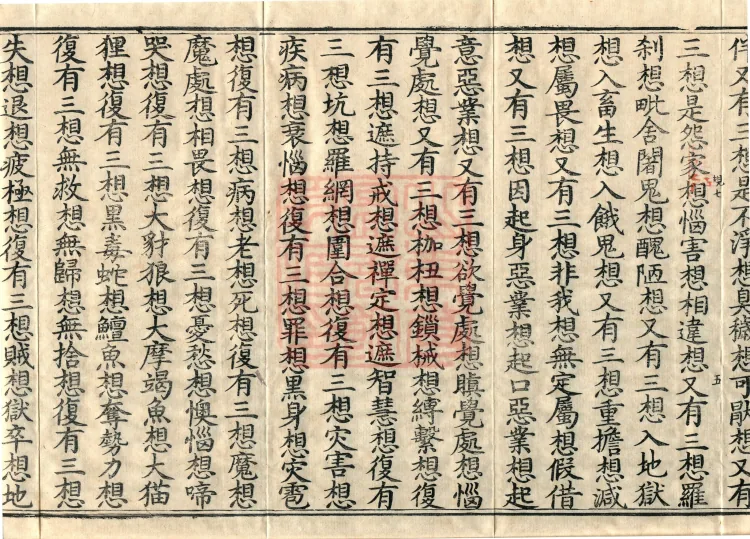 伴又有三想是不淨想臭穢想可
想又有
三想是怨家想惱害想相違想又有三想羅
刹想毗舍闍鬼想醜陋想又有三想入地獄
想入畜生想入餓鬼想又有三想重擔想減
想屬畏想又有三想非我想無定屬想假借
想又有三想因起身惡業想起口惡業想起
意惡業想又有三想欲覺處想瞋覺處想惱
覺處想又有三想枷杻想鎖械想縛繫想復
有三想遮持戒想遮禪定想遮智慧想復有
三想坑想羅網想圍合想復有三想灾害想
疾病想衰惱想復有三想罪想黑身想灾雹
想復有三想病想老想死想復有三想魔想
魔處想相畏想復有三想憂愁想懊惱想啼
哭想復有三想大豺狼想大摩竭魚想大猫
狸想復有三想黑毒蛇想鱣魚想奪勢力想
復有三想無救想無歸想無捨想復有三想
失想退想疲極想復有三想賊想獄卒想地
覺七
五